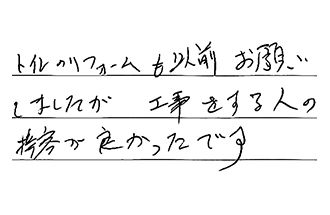 トイレのリフォームも以前お願い
しましたが 工事をする人の
接客が良かったです